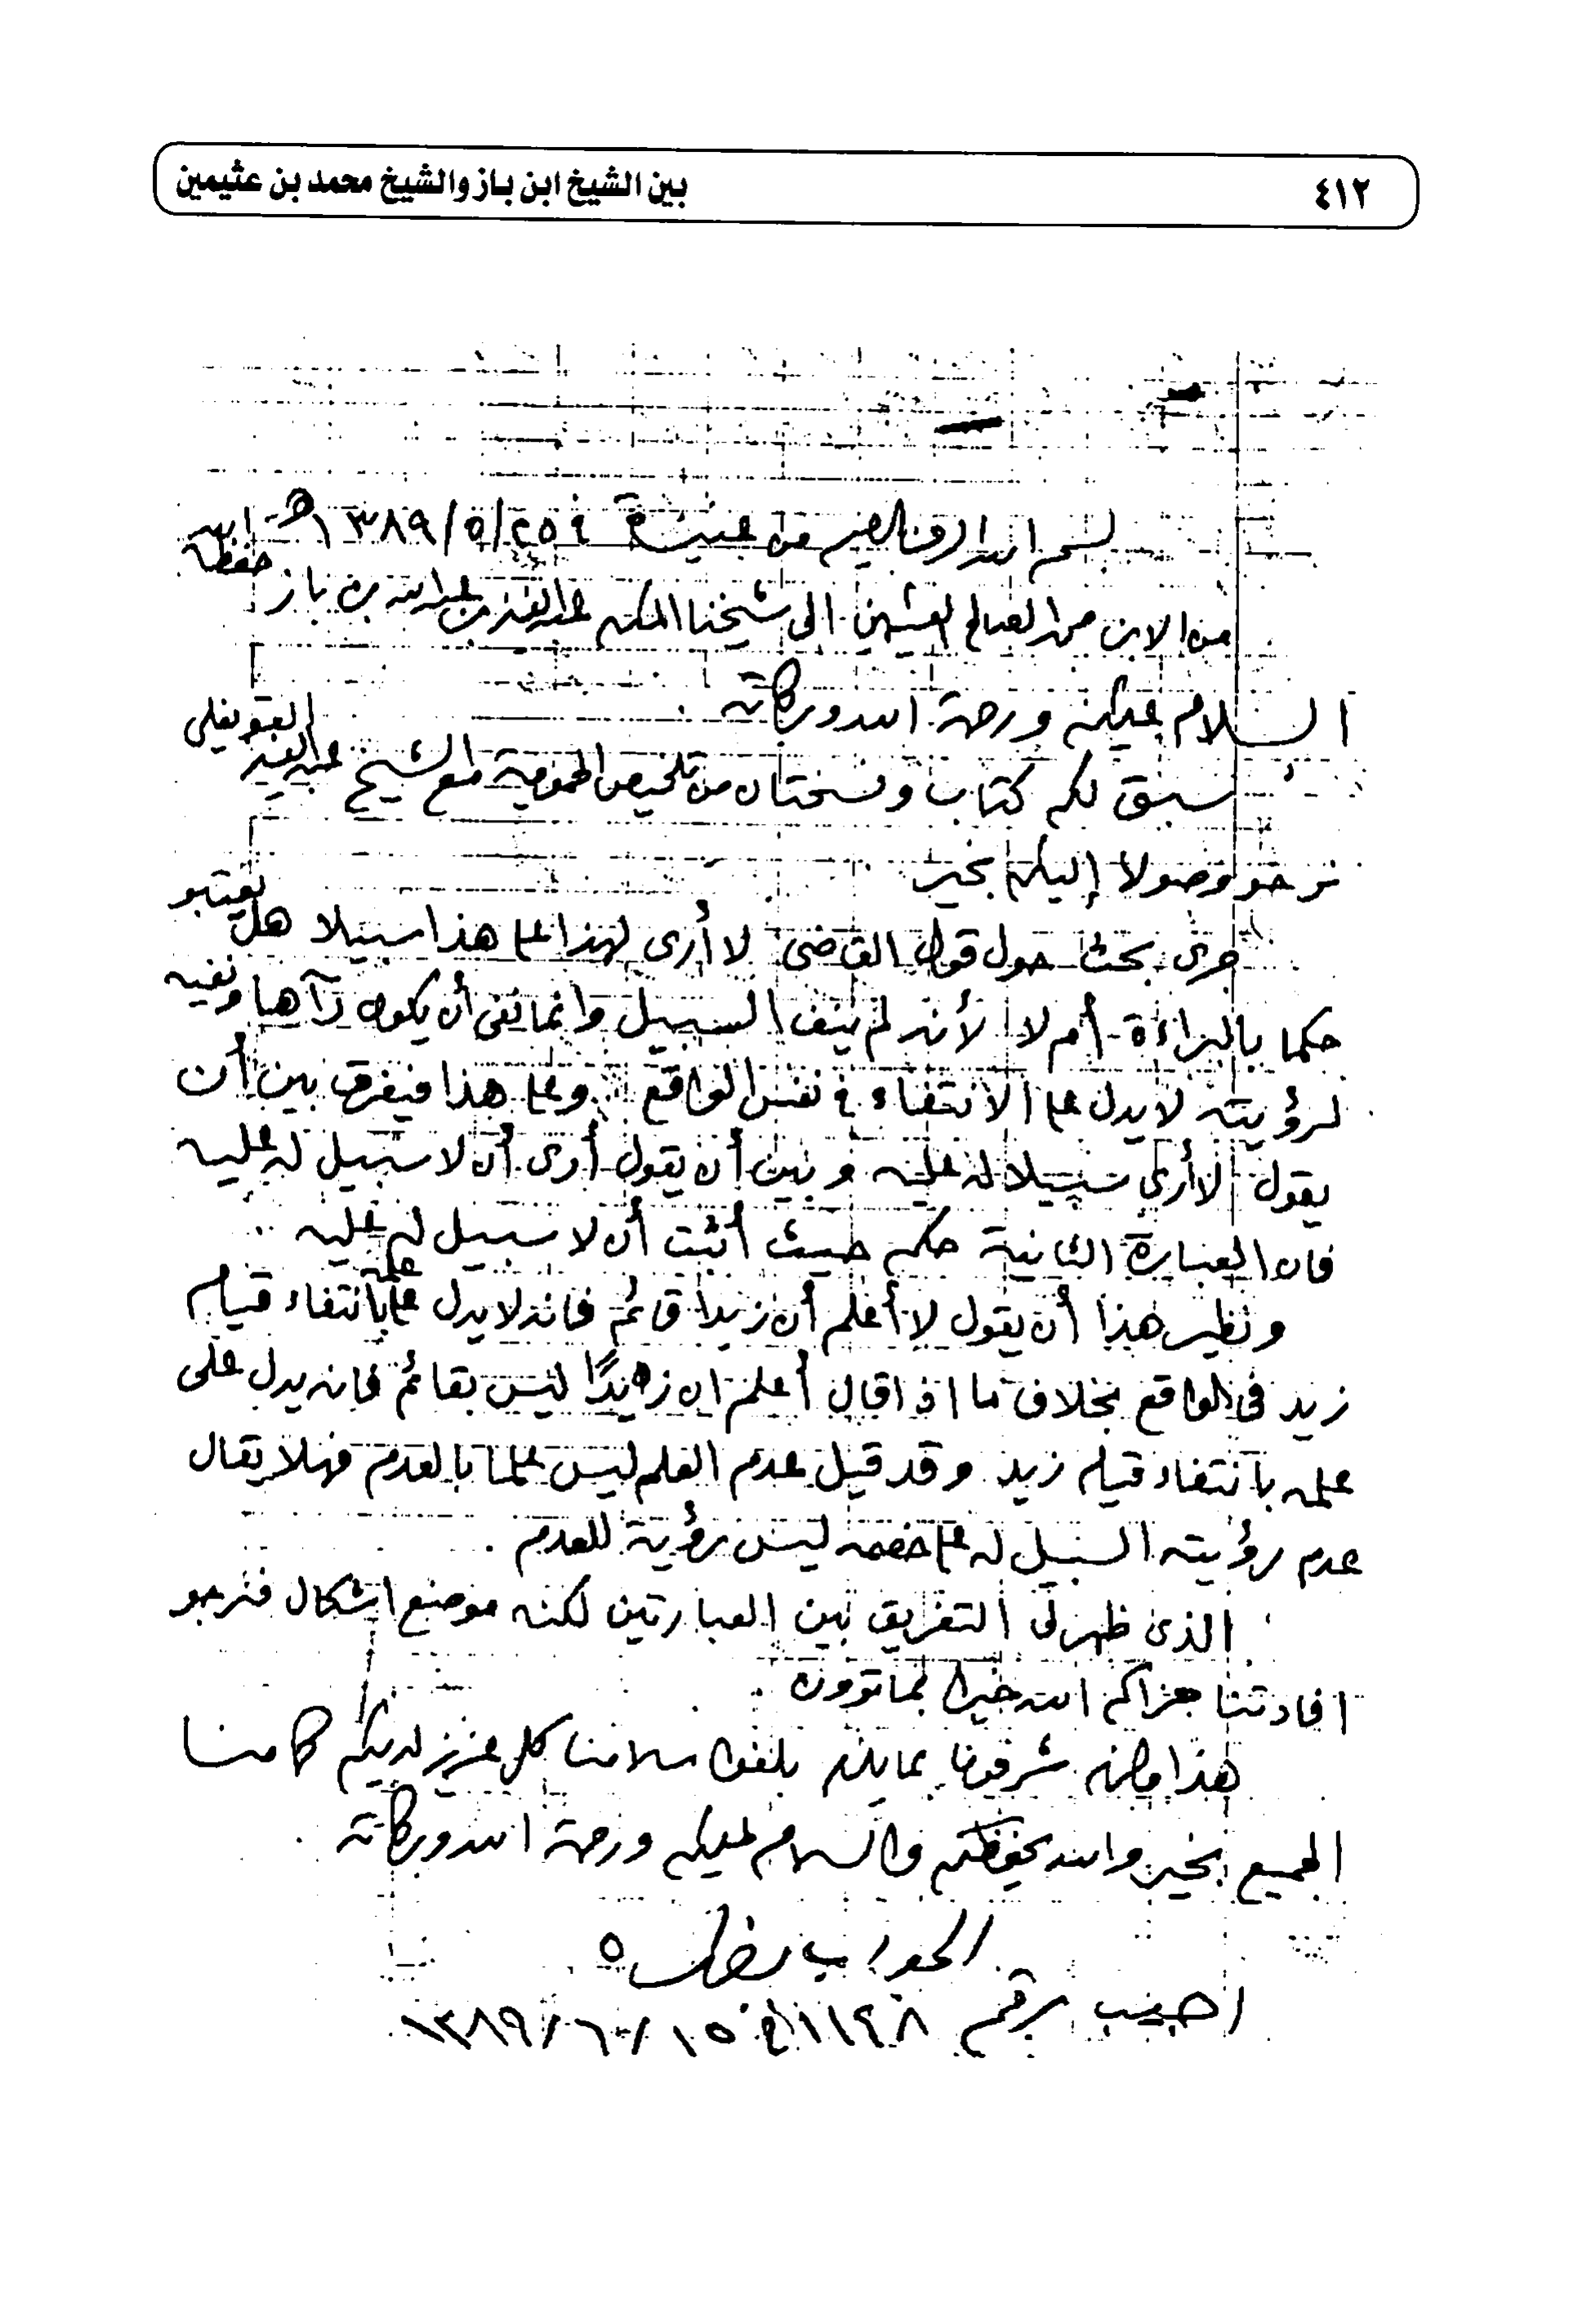 ٤١٢
بين الشيخ ابن باز والشيخ محمد بن عثيمين
بسم الله الرحمن الرحيم من عنيزة في ٢٥/٥/١٣٨٩هـ
من الابن محمد الصالح العثيمين الى شيخنا المكرم عبدالعزيز بن عبدالله بن باز حفظه الله
السلام عليكم ورحمة الله وبركاته .
سبق لكم كتاب ونسختان من تلخيص الحموية مع الشيخ عبدالعزيز
نرجو وصولا إليكم بخير
جرى بحث حول قول القاضى لا أرى لهذا على هذا سبيلا هل يعتبر
حكما بالبراءة أم لا لأنه لم ينف السبيل وانما نفى أن يكون رآها ونفيه
لرؤيته لا يدل على الانتفاء في نفس الواقع وعلى هذا فيفرق بين أن
يقول لا أرى سبيلا له عليه وبين أن يقول أرى أن لا سبيل له عليه
فان العبارة الثانية حكم حيث أثبت أن لا سبيل له عليه
ونظير هذا أن يقول لا أعلم أن زيدا قائم فانه لا يدل على علمه بانتفاء قيام
زيد فى الواقع بخلاف ما اذا قال أعلم ان زيدًا ليس بقائم فانه يدل على
علمه بانتفاء قيام زيد وقد قيل عدم العلم ليس علما بالعدم فهلا يقال
عدم رؤيته السبيل له على خصمه ليس رؤية للعدم .
الذى ظهر لى التفريق بين العبارتين لكنه موضع اشكال فنرجو
افادتنا جزاكم الله خيرا لما ترون
هذا ولازم شرفونا بما يلزم بلغوا سلامنا كل عزيز لديكم كما منا
الجميع بخير والله يحفظكم والسلام عليكم ورحمة الله وبركاته .
الجواب
اجيب برقم ١١٤٨ في ١٥/٦/١٣٨٩